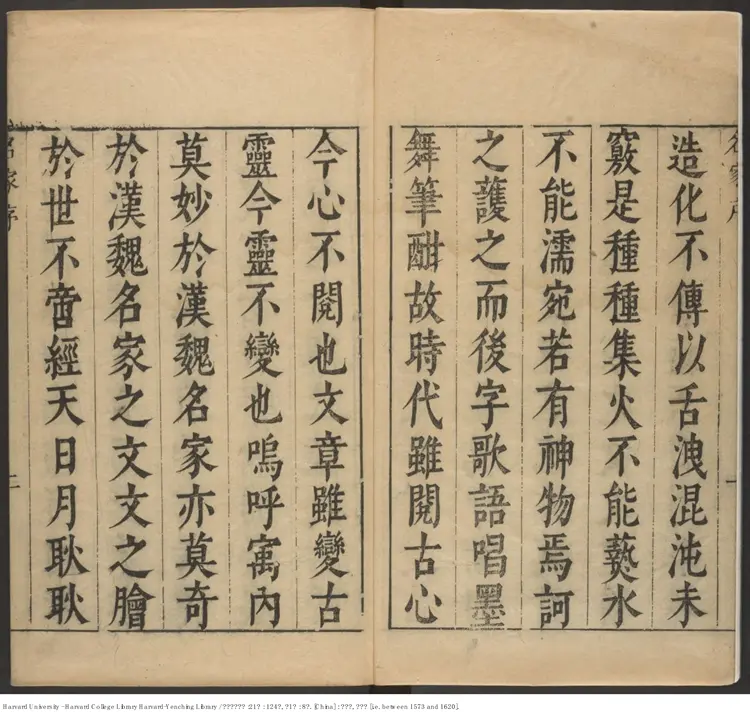 名家序
一
造化不傳以舌洩混沌未
竅是種種集火不能爇水
不能濡宛若有神物焉訶
之護之而後字歌語唱墨
舞筆酣故時代雖閱古心
今心不閱也文章雖變古
靈今靈不變也嗚呼寓內
莫妙於漢魏名家亦莫奇
於漢魏名家之文文之膾
於世不啻經天日月耿耿
名家序
二
Harvard University - Harvard College Library Harvard-Yenching Library / ?????? :21? : 124?, ?1? : 8?. [China] : ???, ??? [i.e, between 1573 and 1620].